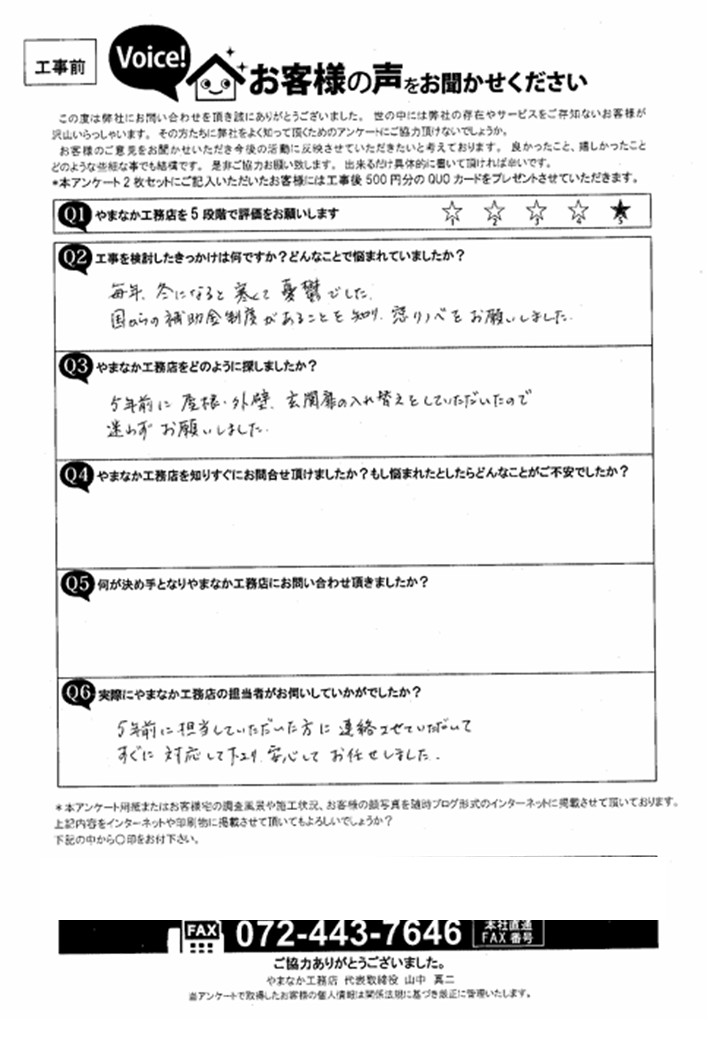 工事前
Voice!
お客様の声をお聞かせください
この度は弊社にお問い合わせを頂き誠にありがとうございました。 世の中には弊社の存在やサービスをご存知ないお客様が
沢山いらっしゃいます。 その方たちに弊社をよく知って頂くためのアンケートにご協力頂けないでしょうか。
お客様のご意見をお聞かせいただき今後の活動に反映させていただきたいと考えております。 良かったこと、嬉しかったこと
どのような些細な事でも結構です。 是非ご協力お願い致します。 出来るだけ具体的に書いて頂ければ幸いです。
*本アンケート2枚セットにご記入いただいたお客様には工事後500円分のQUOカードをプレゼントさせていただきます。
Q1 やまなか工務店を5段階で評価をお願いします
☆ ☆ ☆ ☆ ★
1 2 3 4 5
Q2 工事を検討したきっかけは何ですか?どんなことで悩まれていましたか?
毎年、冬になると寒くて憂鬱でした。
国からの補助金制度があることを知り、窓リノベをお願いしました。
Q3 やまなか工務店をどのように探しましたか?
5年前に屋根・外壁、玄関扉の入れ替えをしていただいたので
迷わずお願いしました。
Q4 やまなか工務店を知りすぐにお問合せ頂けましたか?もし悩まれたとしたらどんなことがご不安でしたか?
Q5 何が決め手となりやまなか工務店にお問い合わせ頂きましたか?
Q6 実際にやまなか工務店の担当者がお伺いしていかがでしたか?
5年前に担当していただいた方に連絡させていただいて
すぐに対応して下さり、安心してお任せしました。
*本アンケート用紙またはお客様宅の調査風景や施工状況、お客様の顔写真を随時ブログ形式のインターネットに掲載させて頂いております。
上記内容をインターネットや印刷物に掲載させて頂いてもよろしいでしょうか?
下記の中から○印をお付下さい。
FAX 072-443-7646 本社直通
FAX番号
ご協力ありがとうございました。
やまなか工務店 代表取締役 山中 真二
当アンケートで取得したお客様の個人情報は関係法規に基づき厳正に管理いたします。